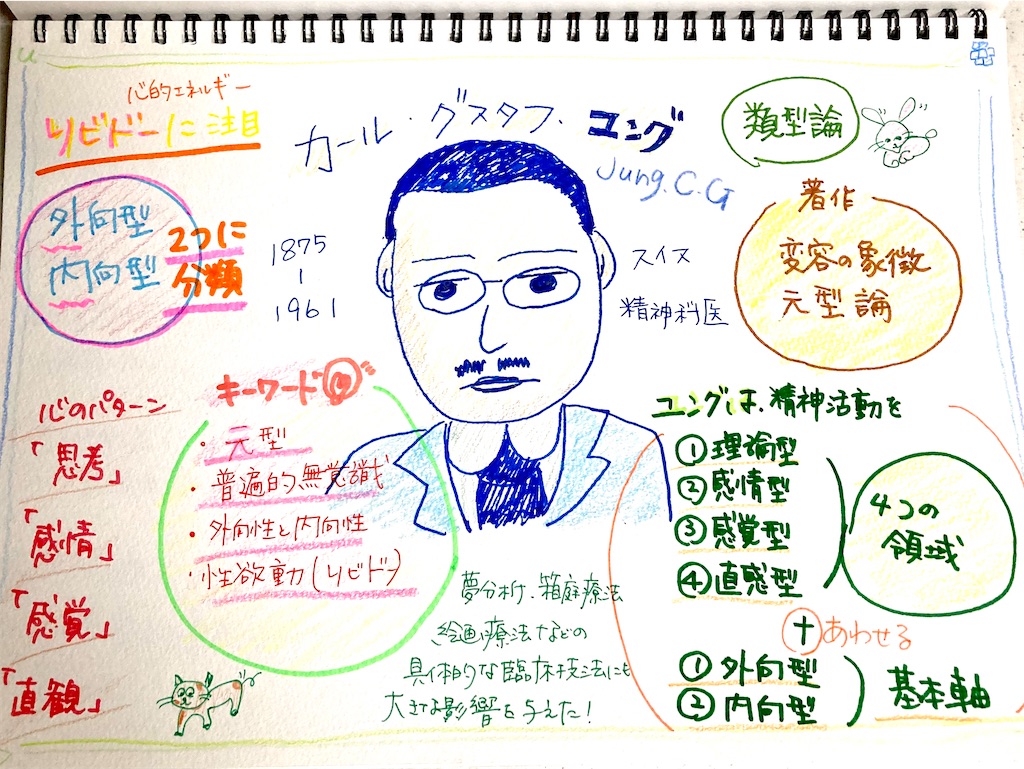 心的エネルギー
リビドーに注目
カール・グスタフ・ユング
Jung.C.G
類型論
外向型
内向型
2つに
分類
1875
|
1961
スイス
精神科医
著作
変容の象徴
元型論
心のパターン
「思考」
「感情」
「感覚」
「直観」
キーワード
・元型
・普遍的無意識
・外向性と内向性
・性欲動(リビドー)
夢分析、箱庭療法
絵画療法などの
具体的な臨床技法にも
大きな影響を与えた!
ユングは、精神活動を
①理論型
②感情型
③感覚型
④直感型
4つの
領域
+あわせる
①外向型
②内向型
基本軸